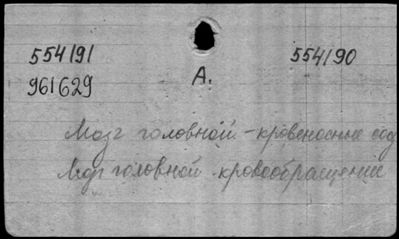 554191 554190
961629 А.
Мозг головной - кровеносные сод
Мозг головной - кровообращение